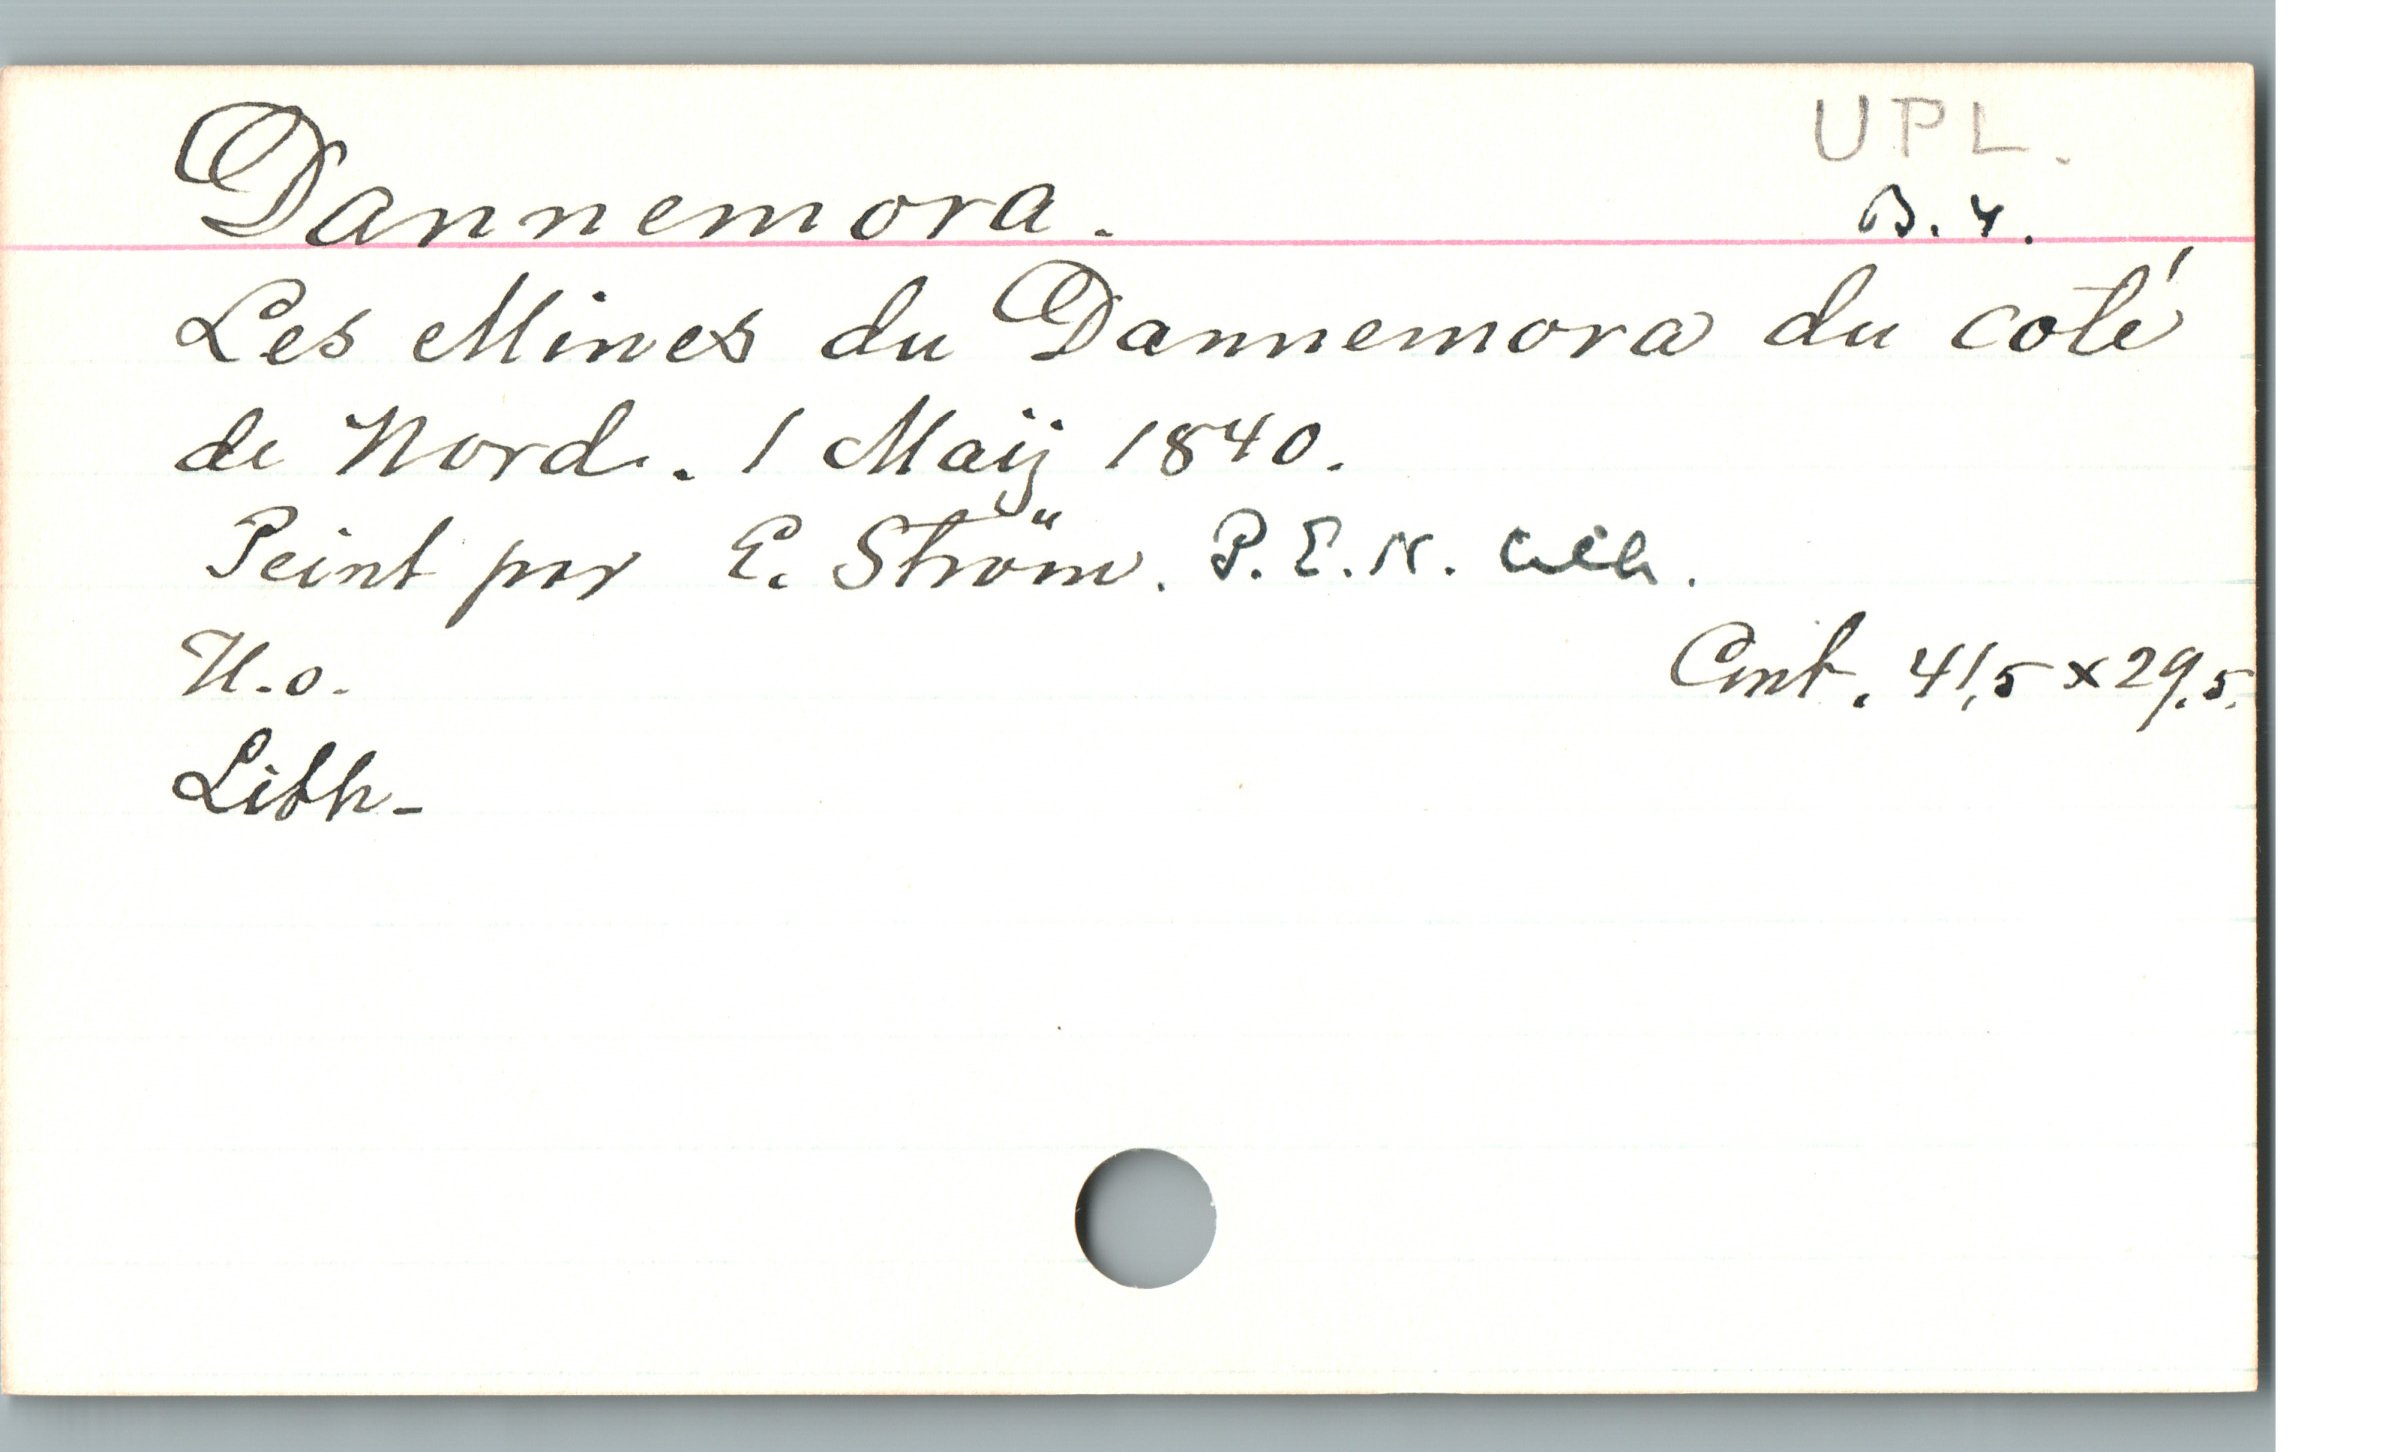 UPL.
Dannemora. B. 4.
Les Mines du Dannemora du coté
de Nord. 1 Maij 1840.
Peint par E. Ström. P. E. N. lith.
U. o. Cmt. 41,5 x 29,5.
Lith-